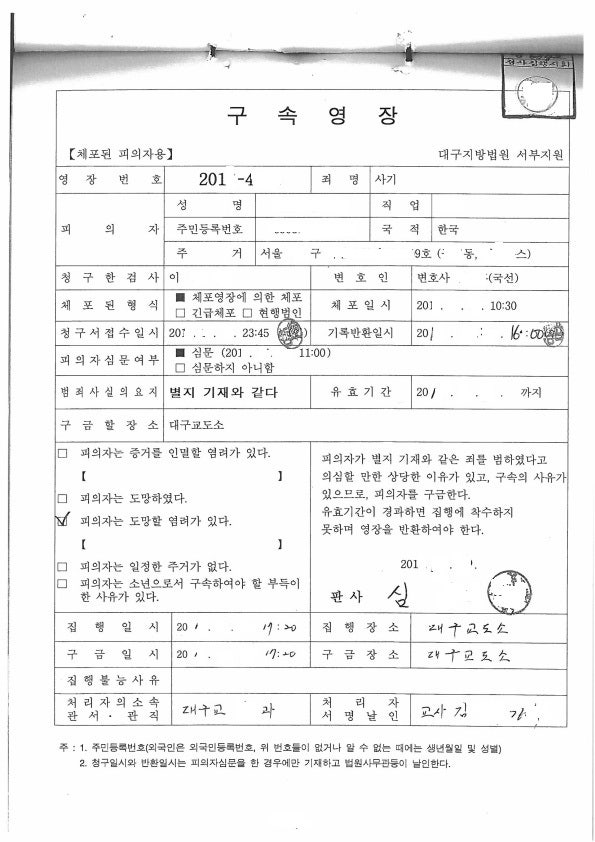 구 속 영 장
【체포된 피의자용】 대구지방법원 서부지원
영 장 번 호 201 -4 죄 명 사기
피 의 자 성 명 직 업
주민등록번호 국 적 한국
주 거 서울 구 9호 ( 동, 스)
청 구 한 검 사 이 변 호 인 변호사 (국선)
체 포 된 형 식 ■ 체포영장에 의한 체포 체 포 일 시 201 . . . 10:30
□ 긴급체포 □ 현행범인
청구서접수일시 201 . . . 23:45 기록반환일시 201 . . . 16:00
피의자심문여부 ■ 심문 (201 . . . 11:00)
□ 심문하지 아니함
범죄사실의요지 별지 기재와 같다 유 효 기 간 201 . . . 까지
구 금 할 장 소 대구교도소
□ 피의자는 증거를 인멸할 염려가 있다.
【 】
□ 피의자는 도망하였다.
☑ 피의자는 도망할 염려가 있다.
【 】
□ 피의자는 일정한 주거가 없다.
□ 피의자는 소년으로서 구속하여야 할 부득이
한 사유가 있다.
피의자가 별지 기재와 같은 죄를 범하였다고
의심할 만한 상당한 이유가 있고, 구속의 사유가
있으므로, 피의자를 구금한다.
유효기간이 경과하면 집행에 착수하지
못하며 영장을 반환하여야 한다.
201 . . .
판 사 심
집 행 일 시 201 . . . 17:20 집 행 장 소 대구교도소
구 금 일 시 201 . . . 17:20 구 금 장 소 대구교도소
집행불능사유
처리자의소속 대구교 과 처 리 자 교사 김
관서·관직 서 명 날 인
주 : 1. 주민등록번호(외국인은 외국인등록번호, 위 번호들이 없거나 알 수 없는 때에는 생년월일 및 성별)
2. 청구일시와 반환일시는 피의자심문을 한 경우에만 기재하고 법원사무관등이 날인한다.